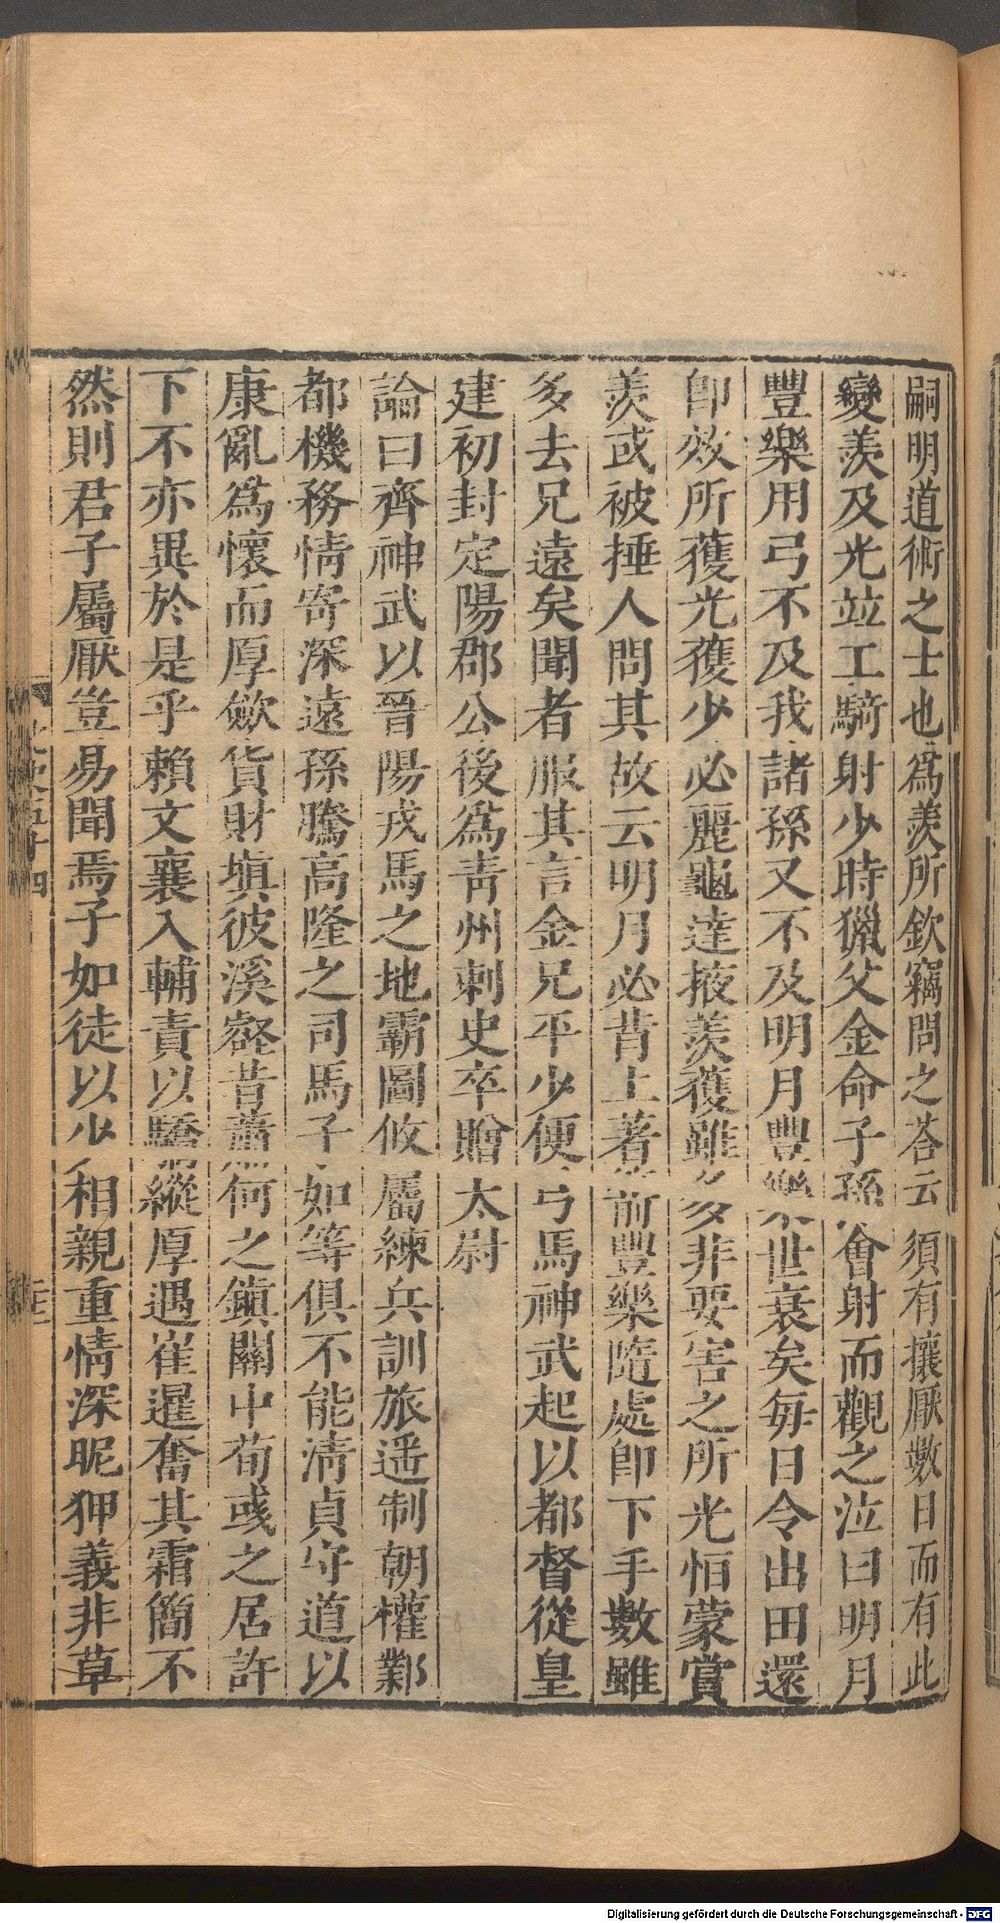 嗣明道術之士也爲羨所欽竊問之荅云須有攘厭數日而有此
變羨及光竝工騎射少時獵父金命子孫會射而觀之泣曰明月
豐樂用弓不及我諸孫又不及明月豐樂世衰矣毎日令出田還
即效所獲光獲少必麗龜達掖羨獲雖多非要害之所光恒蒙賞
羨或被捶人問其故云明月必背上著箭豐樂隨處即下手數雖
多去兄遠矣聞者服其言金兄平少便弓馬神武起以都督從皇
建初封定陽郡公後爲靑州刺史卒贈太尉
論曰齊神武以晉陽戎馬之地霸圖攸屬練兵訓旅遥制朝權鄴
都機務情寄深遠孫騰高隆之司馬子如等俱不能淸貞守道以
康亂爲懷而厚斂貨財塡彼溪壑昔蕭何之鎭關中荀彧之居許
下不亦異於是乎賴文襄入輔責以驕縱厚遇崔暹奮其霜簡不
然則君子屬厭豈易聞焉子如徒以少相親重情深昵狎義非草
四
Digitalisierung gefördert durch die Deutsche Forschungsgemeinschaft - DFG